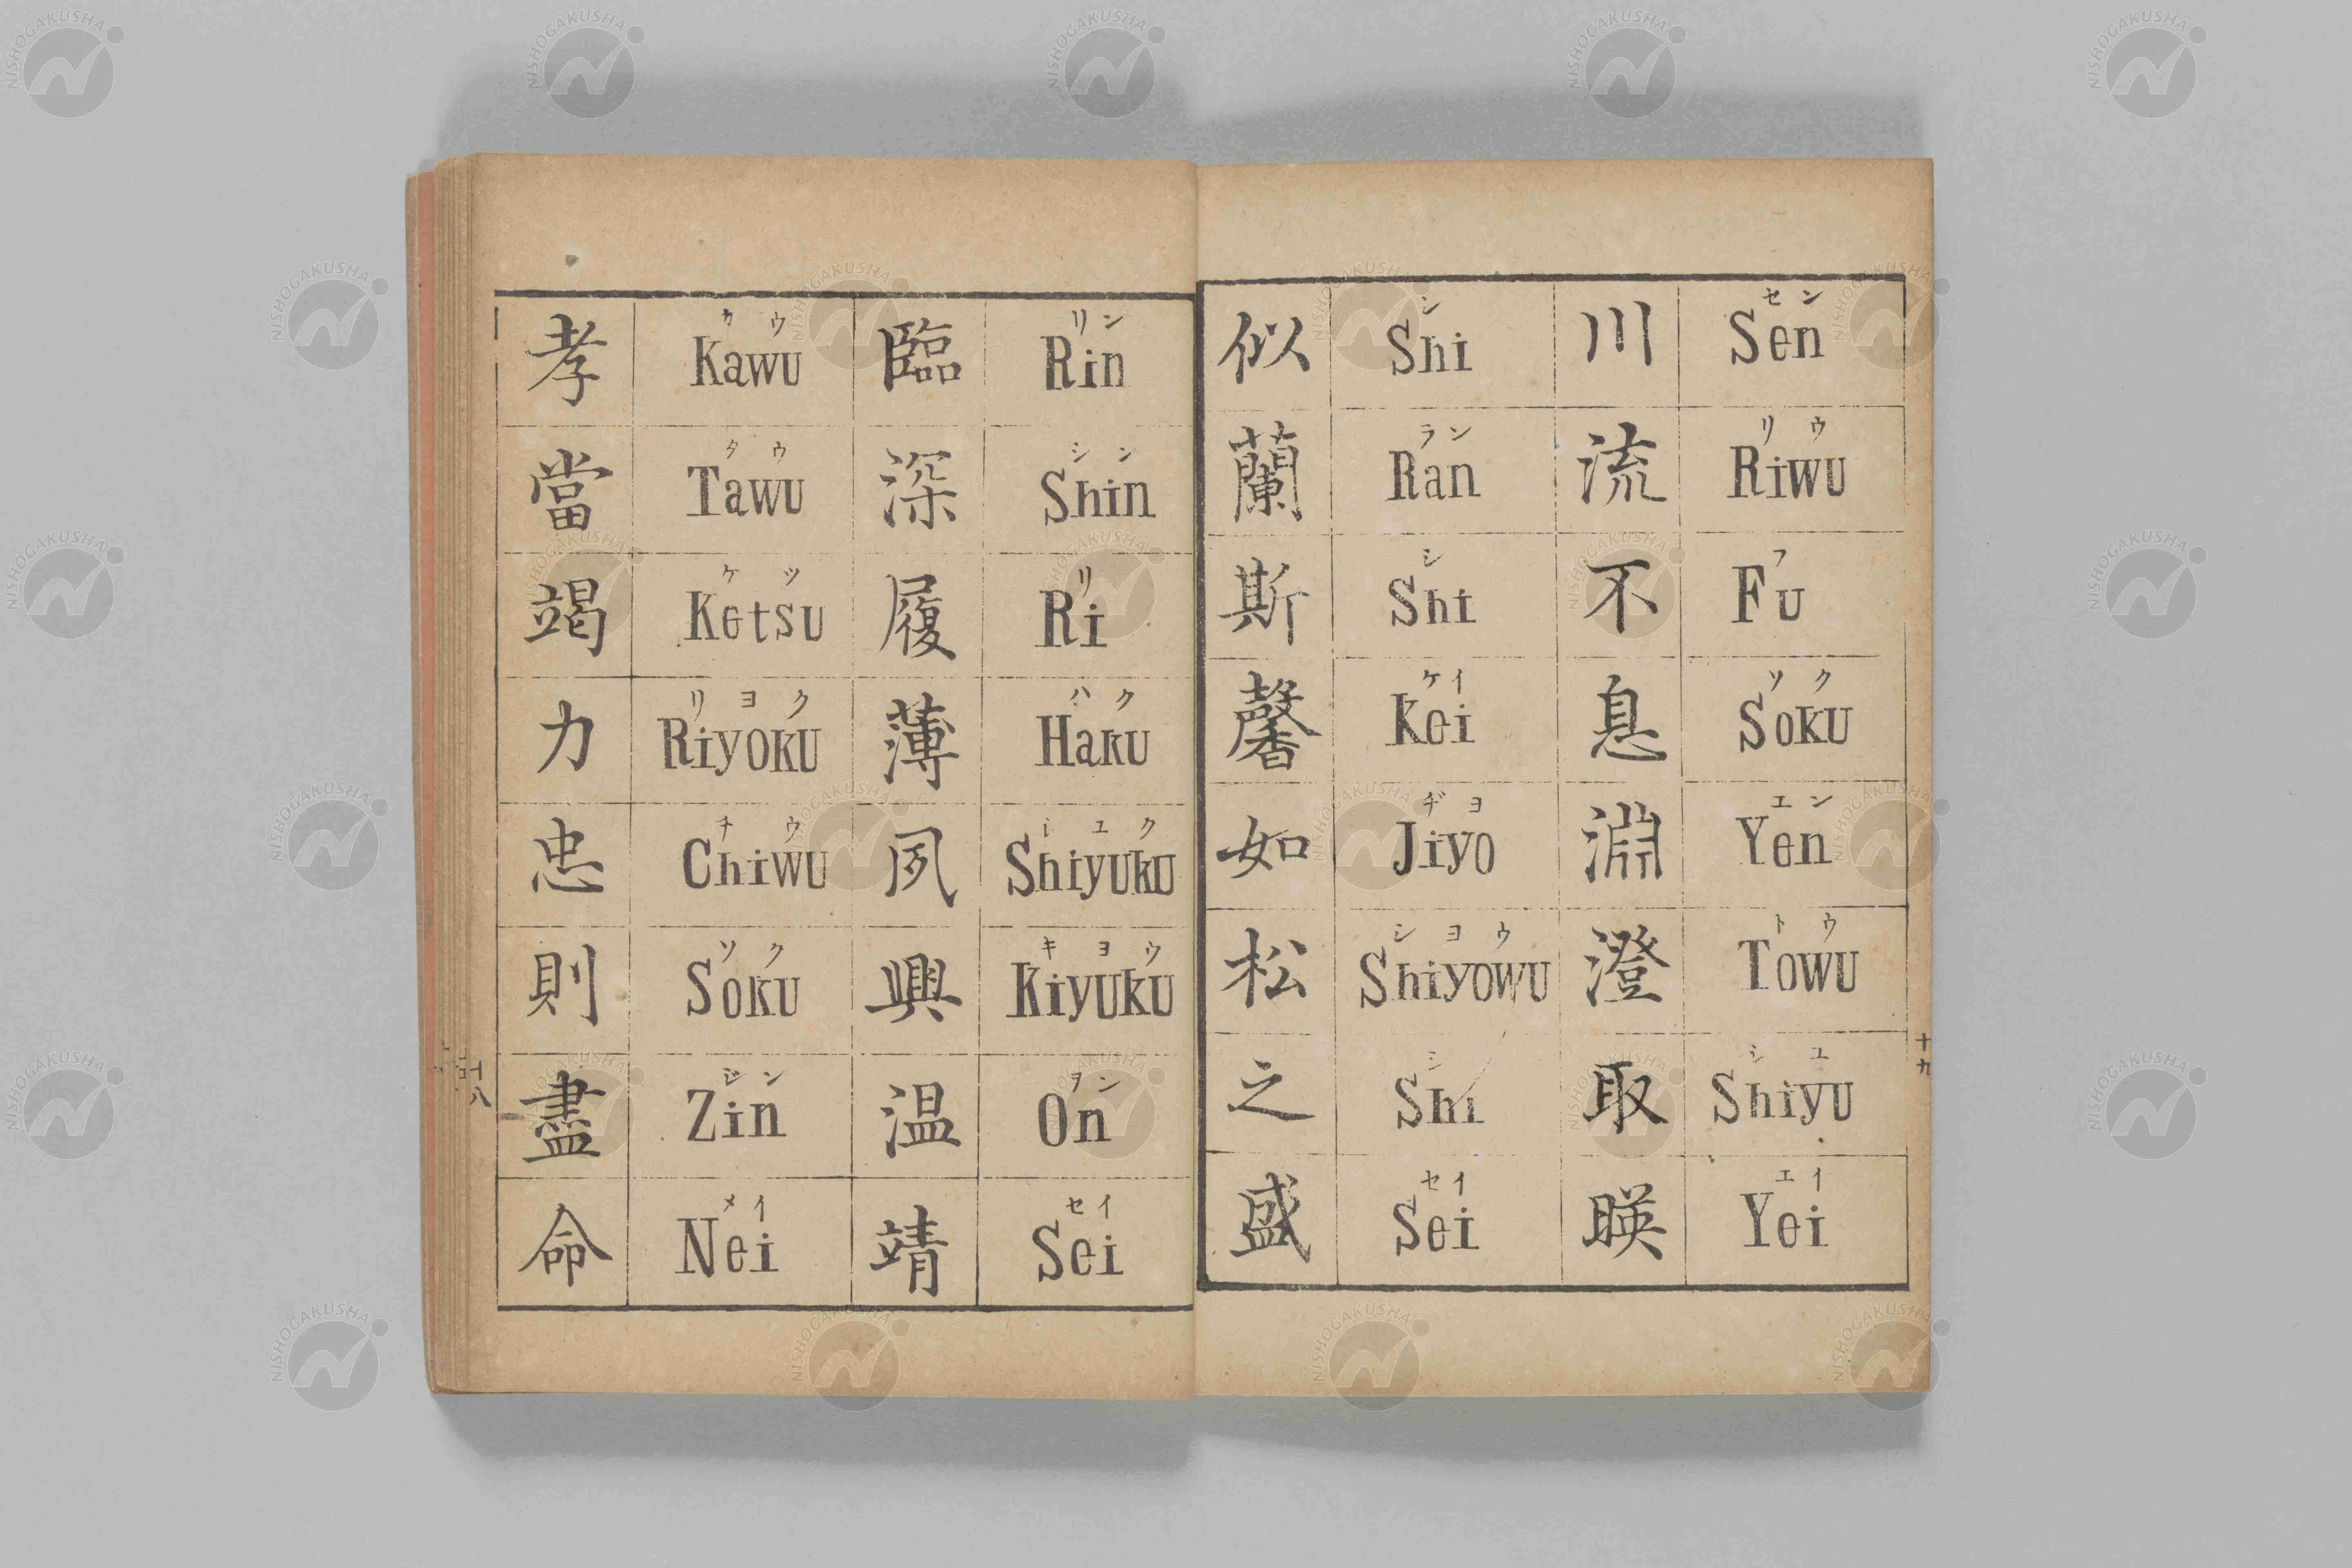 孝 カウ Kawu
當 タウ Tawu
竭 ケツ Ketsu
力 リヨク Riyoku
忠 チウ Chiwu
則 ソク Soku
盡 ジン Zin
命 メイ Nei
臨 リン Rin
深 シン Shin
履 リ Ri
薄 ハク Haku
夙 シユク Shiyuku
興 キヨウ Kiyuku
温 ヲン On
靖 セイ Sei
十八
似 シ Shi
蘭 ラン Ran
斯 シ Shi
馨 ケイ Kei
如 ヂヨ Jiyo
松 シヨウ Shiyowu
之 シ Shi
盛 セイ Sei
川 セン Sen
流 リウ Riwu
不 フ Fu
息 ソク Soku
淵 エン Yen
澄 トウ Towu
取 シユ Shiyu
暎 エイ Yei
十九
NISHOGAKUSHA